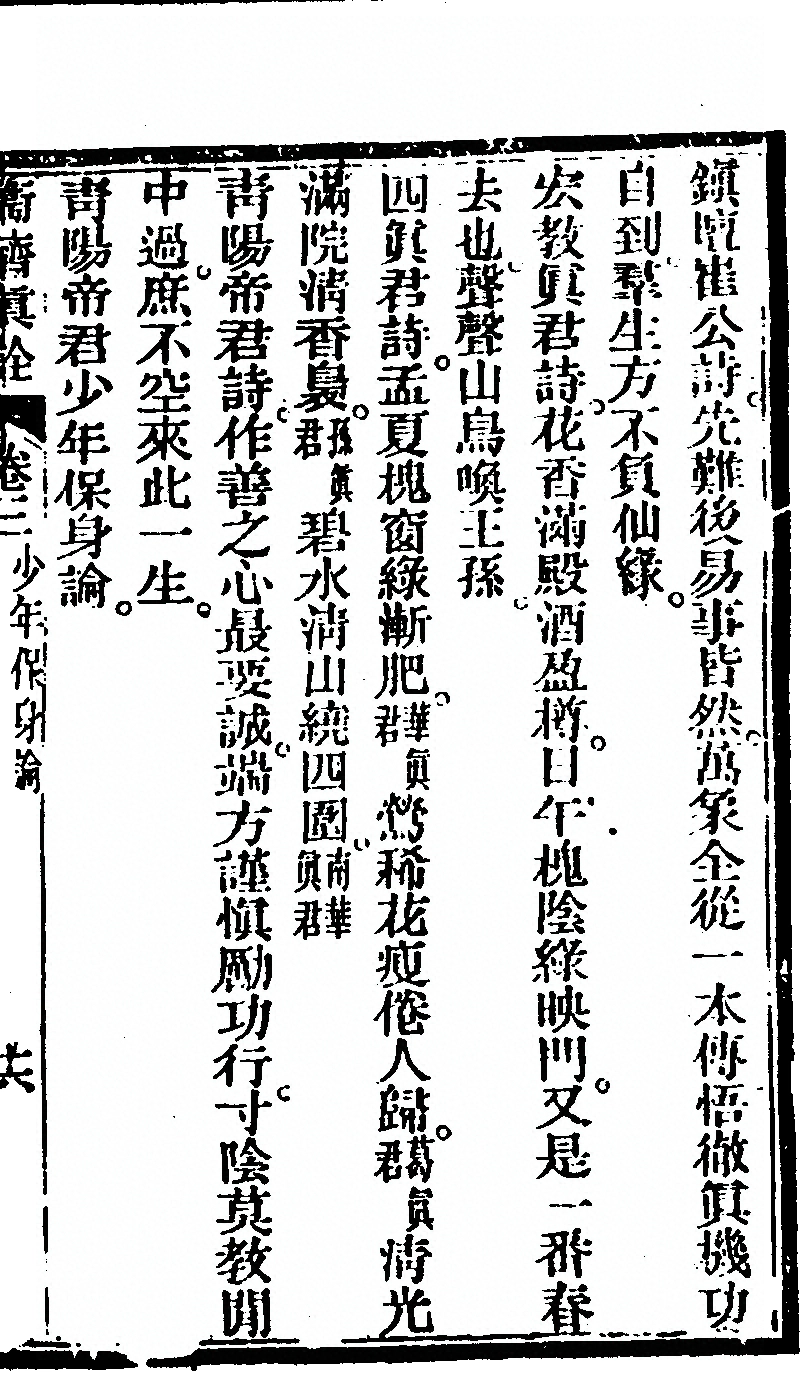 鎮壇崔公詩。先難後易事皆然。萬象全從一本傳。悟徹眞機功
自到。羣生方不負仙緣。
宏教眞君詩。花香滿殿酒盈樽。日午槐陰綠映門。又是一番春
去也。聲聲山鳥喚王孫。
四眞君詩。孟夏槐窗綠漸肥。華眞君鶯稀花瘦倦人歸。葛眞君淸光
滿院淸香裊。孫眞君碧水淸山繞四圍。南華眞君
靑陽帝君詩。作善之心最要誠。端方謹愼勵功行。寸陰莫教閒
中過。庶不空來此一生。
靑陽帝君少年保身論。
衞濟眞詮 卷三 少年保身論 共